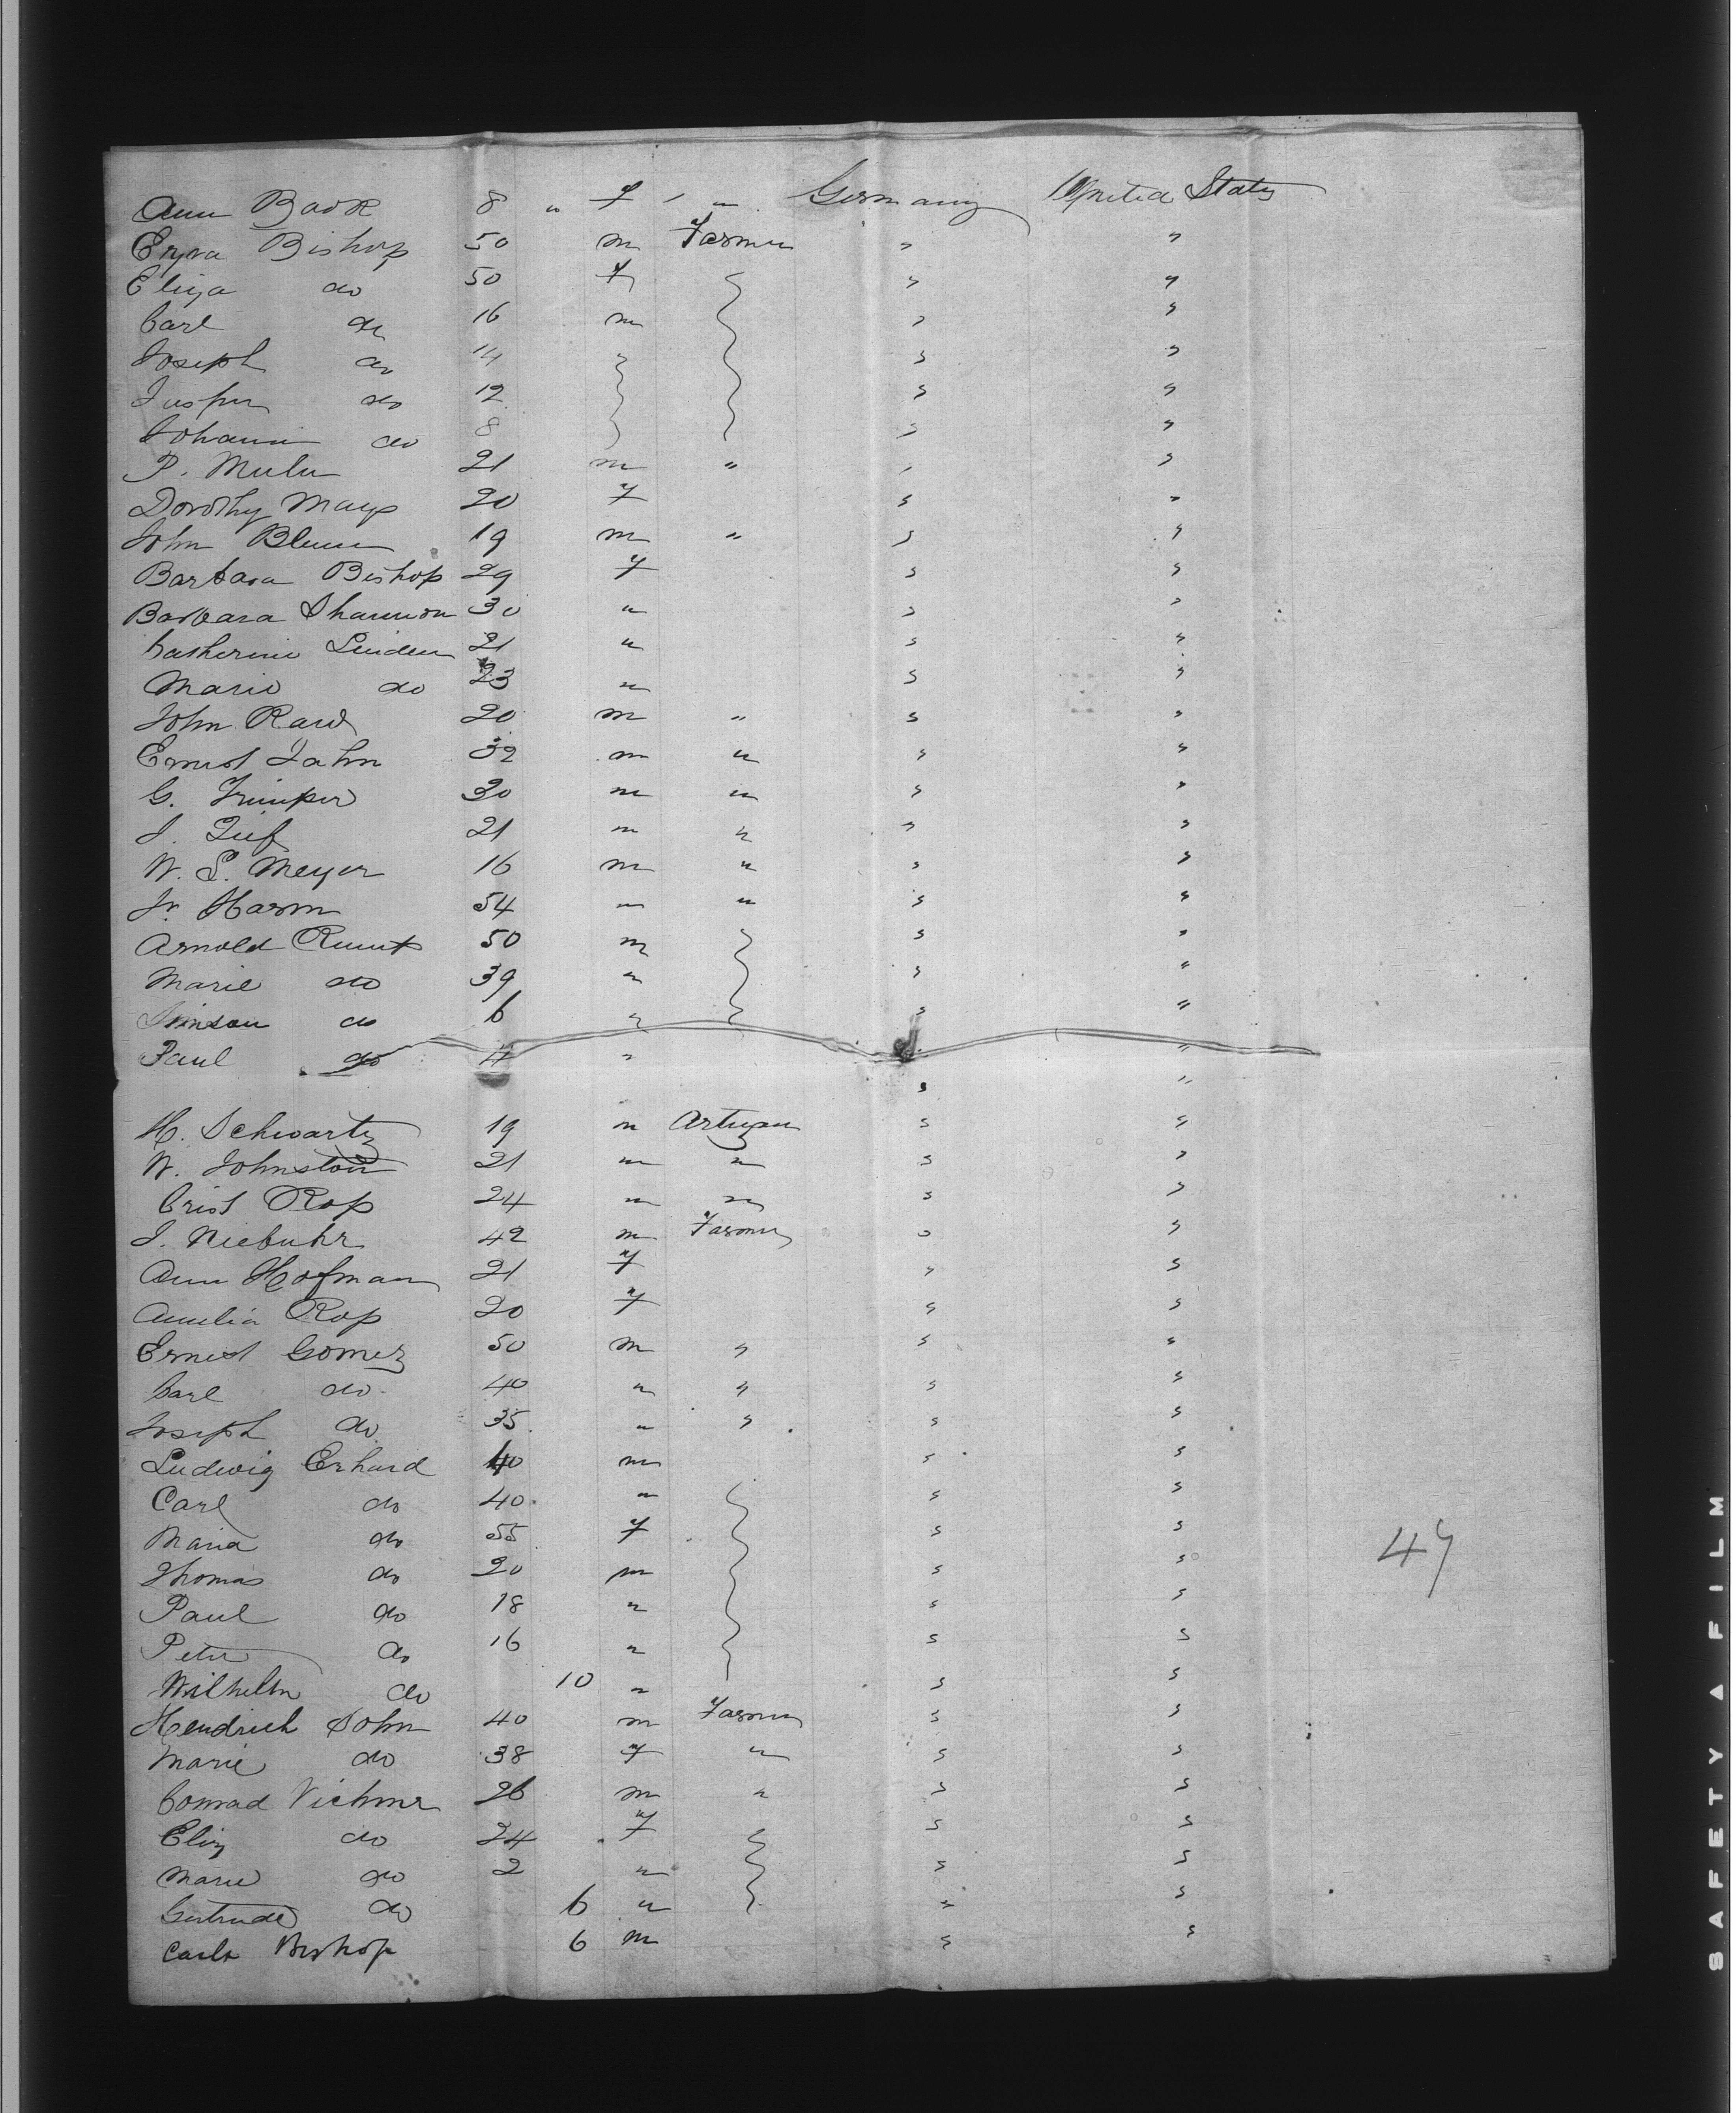 Ann Book 8 " f " " Germany United States
Ezra Bishop 50 m Farmer " "
Eliza do 50 f " "
Carl do 16 m " "
Joseph do 14 " "
do 12 " "
Johann do 8 " "
P. 21 m " " "
Dorothy Mays 20 f " "
John Blum 19 m " " "
Barbara Bishop 29 f " "
Barbara Shannon 30 " " "
Katherine Linden 21 " " "
Marie do 23 " " "
John 20 m " " "
Ernest Jahn 32 m " " "
G. 30 m " " "
J. 21 m " " "
W. L. Meyer 16 m " " "
Harm 54 " " " "
Arnold 50 m " "
Marie do 39 " " "
do 6 " " "
Paul do 4 " "
" "
H. Schwartz 19 m Artizan " "
W. Johnston 21 m " " "
Crist Rop 24 " " " "
J. Niebuhr 42 m Farmer " "
Ann Hofman 21 f " "
Amelia Rop 20 f " "
Ernest Gomez 50 m " " "
Carl do 40 " " " "
Joseph do 35 " " " "
Ludwig Erhard 40 m " "
Carl do 40 " " "
Maria do 55 f " "
Thomas do 20 m " "
Paul do 18 " " "
Peter do 16 " " "
Wilhelm do 10 " " "
Hendrich Sohn 40 m Farmer " "
Marie do 38 f " " "
Conrad Vichmer 26 m " " "
Eliz do 24 f " "
Marie do 2 " " "
Gertrude do 6 " " "
Carls Bishop 6 m " "
47
SAFETY ▲ FILM